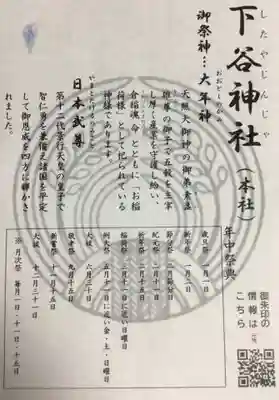 したやじんじゃ
下谷神社(本社)
御祭神…大年神
おおとしのかみ
天照大御神の御弟素盞
雄尊の御子で五穀を主宰
し厚く産業を守護し給い、
倉稲魂命とともに「お稲
荷様」として祀られている
神様であります。
やまとたけるのみこと
日本武尊
第十二代景行天皇の皇子で
智仁勇を兼備え諸国を平定
して御恩威を四方に輝かさ
れました。
年中祭典
歳旦祭 一月一日
新年祭 一月一日
節分祭 二月節分日
紀元祭 二月十一日
祈年祭 二月二十日
稲荷祭 二月二十一日に近い日曜日
例大祭 五月十一日に近い金・土・日曜日
大祓 六月三十日
敬老祭 九月十五日
新嘗祭 十一月十五日
大祓 十二月三十一日
※月次祭 毎月一日・十一日・十五日
御朱印の
情報は
こちら